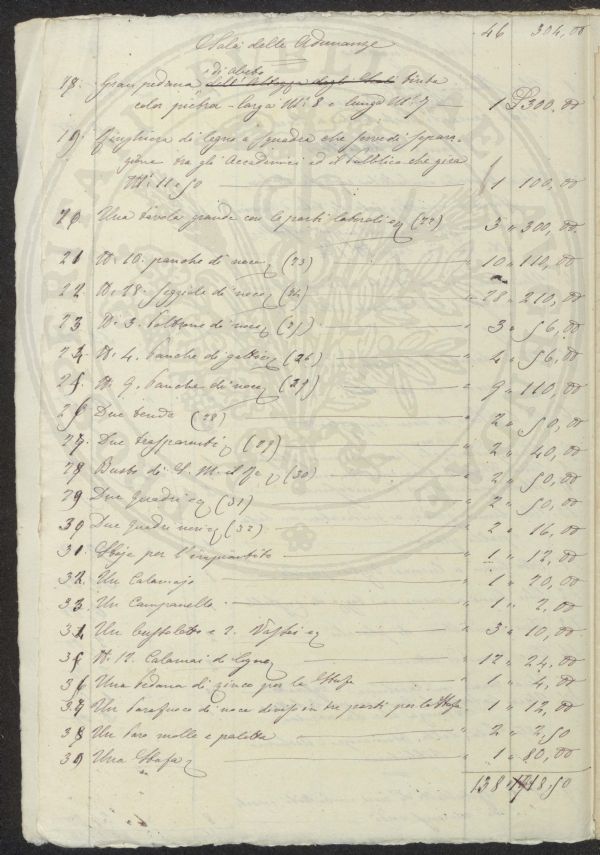 46 304,00
Sala delle Adunanze
di abete
18. Gran pedana dell'Altezza degli Stalli tinta
color pietra - larga M. 8 e lunga M. 7 — 1 £ 300,00
19. Ringhiera di legno a squadra che serve di separa-
zione tra gli Accademici ed il Pubblico che gira
M. 11 e 50 — 1 100,00
20 Una tavola grande con le parti laterali (22) 3 " 300,00
21 N. 10. panche di noce (23) — " 10 " 110,00
22 N. 28. seggiole di noce (24) — " 28 " 210,00
23 N. 3. Poltrone di noce (25) — " 3 " 56,00
24 N. 4. Panche di (26) — " 4 " 56,00
25 N. 9. Panche di noce (27) — " 9 " 110,00
26 Due tende (28) — " 2 " 50,00
27. Due trasparenti (29) — " 2 " 40,00
28 Busto di S. M. il Re (30) — " 2 " 50,00
29 Due Quadri (31) — " 2 " 50,00
30 Due quadri (32) — " 2 " 16,00
31. Stoje per l'impiantito — 1 " 12,00
32. Un Calamajo — " 1 " 20,00
33. Un Campanello — " 1 " 2,00
34. Un e 2. — " 3 " 10,00
35 N. 12. Calamai di legno — " 12 " 24,00
36 Una pedana di zinco per la Stufa — " 1 " 4,00
37. Un Parafuoco di noce diviso in tre parti per la Stufa. " 1 " 12,00
38 Un Paro molle e paletta — " 2 " 2,50
39 Una Stufa — " 1 " 80,00
138